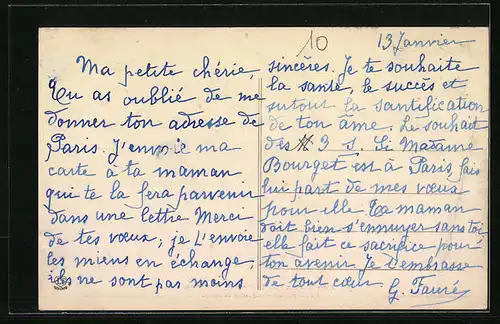 10
13 Janvier
Ma petite chérie,
Tu as oublié de me
donner ton adresse de
Paris. J'envoie ma
carte à ta maman
qui te la fera parvenir
dans une lettre Merci
de tes vœux; je t'envoie
les miens en échange;
ils ne sont pas moins
sincères. Je te souhaite
la santé, le succès et
surtout la santification
de ton âme. Le souhait
des 3 s. Si Madame
Bourget est à Paris, fais
lui part de mes vœux
pour elle Ta maman
doit bien s'ennuyer sans toi
elle fait ce sacrifice pour
ton avenir. Je t'embrasse
de tout cœur
G. Fauré